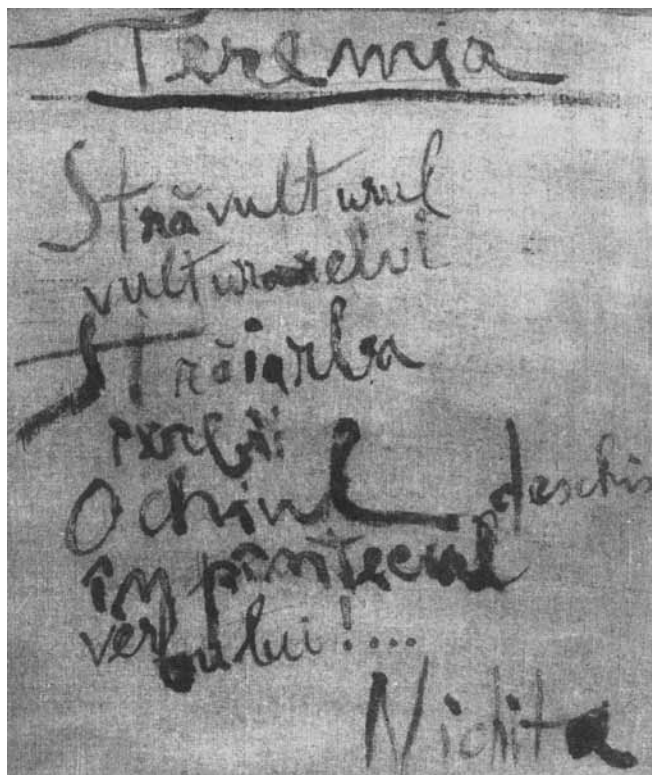 Teremia
Străvulturul
vulturarelui
Străiarba
ierbii
Ochiul deschis
în pîntecul
verbului!...
Nichita